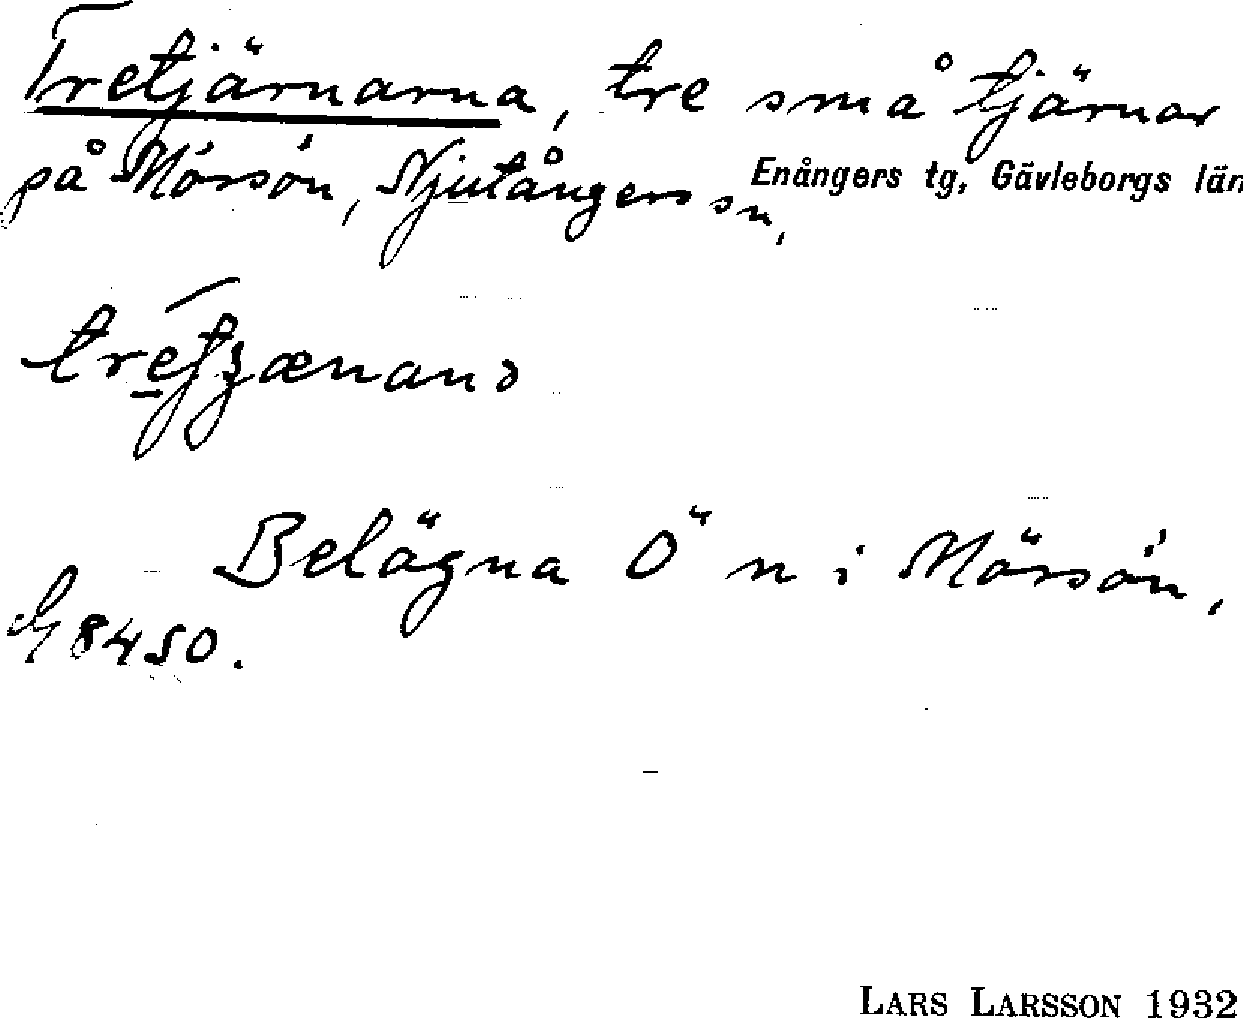 Tretjärnarna, tre små tjärnar
på Mörsön, Njutångers sn, Enångers tg, Gävleborgs län
Belägna Ö n i Mörsön,
8450.
LARS LARSSON 1932